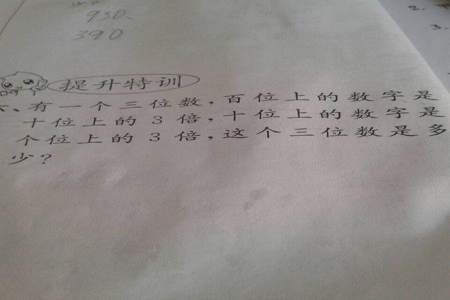 930
390
提升特训
六、有一个三位数,百位上的数字是
十位上的3倍,十位上的数字是
个位上的3倍,这个三位数是多
少?
2.
3.